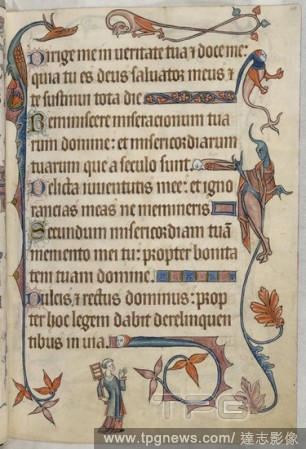 Dirige me in ueritate tua & doce me:
quia tu es deus saluator meus, &
te sustinui tota die
Reminiscere miseracionum tua
rum domine: et misericordiarum
tuarum que a seculo sunt.
Delicta iuuentutis mee: et igno
rancias meas ne memineris
Secundum misericordiam tuā
memento mei tu: propter bonita
tem tuam domine.
Dulcis, & rectus dominus: prop
ter hoc legem dabit derelinquen
tibus in uia.
TPG
www.tpgnews.com/ 達志影像